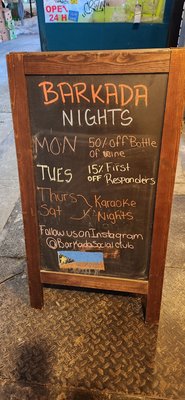 OPEN
24 H
BARKADA
NIGHTS
MON 50% off Bottle
of wine
TUES 15% First
OFF Responders
Thurs Karaoke
Sat Nights
Follow us on Instagram
@BarkadaSocialclub